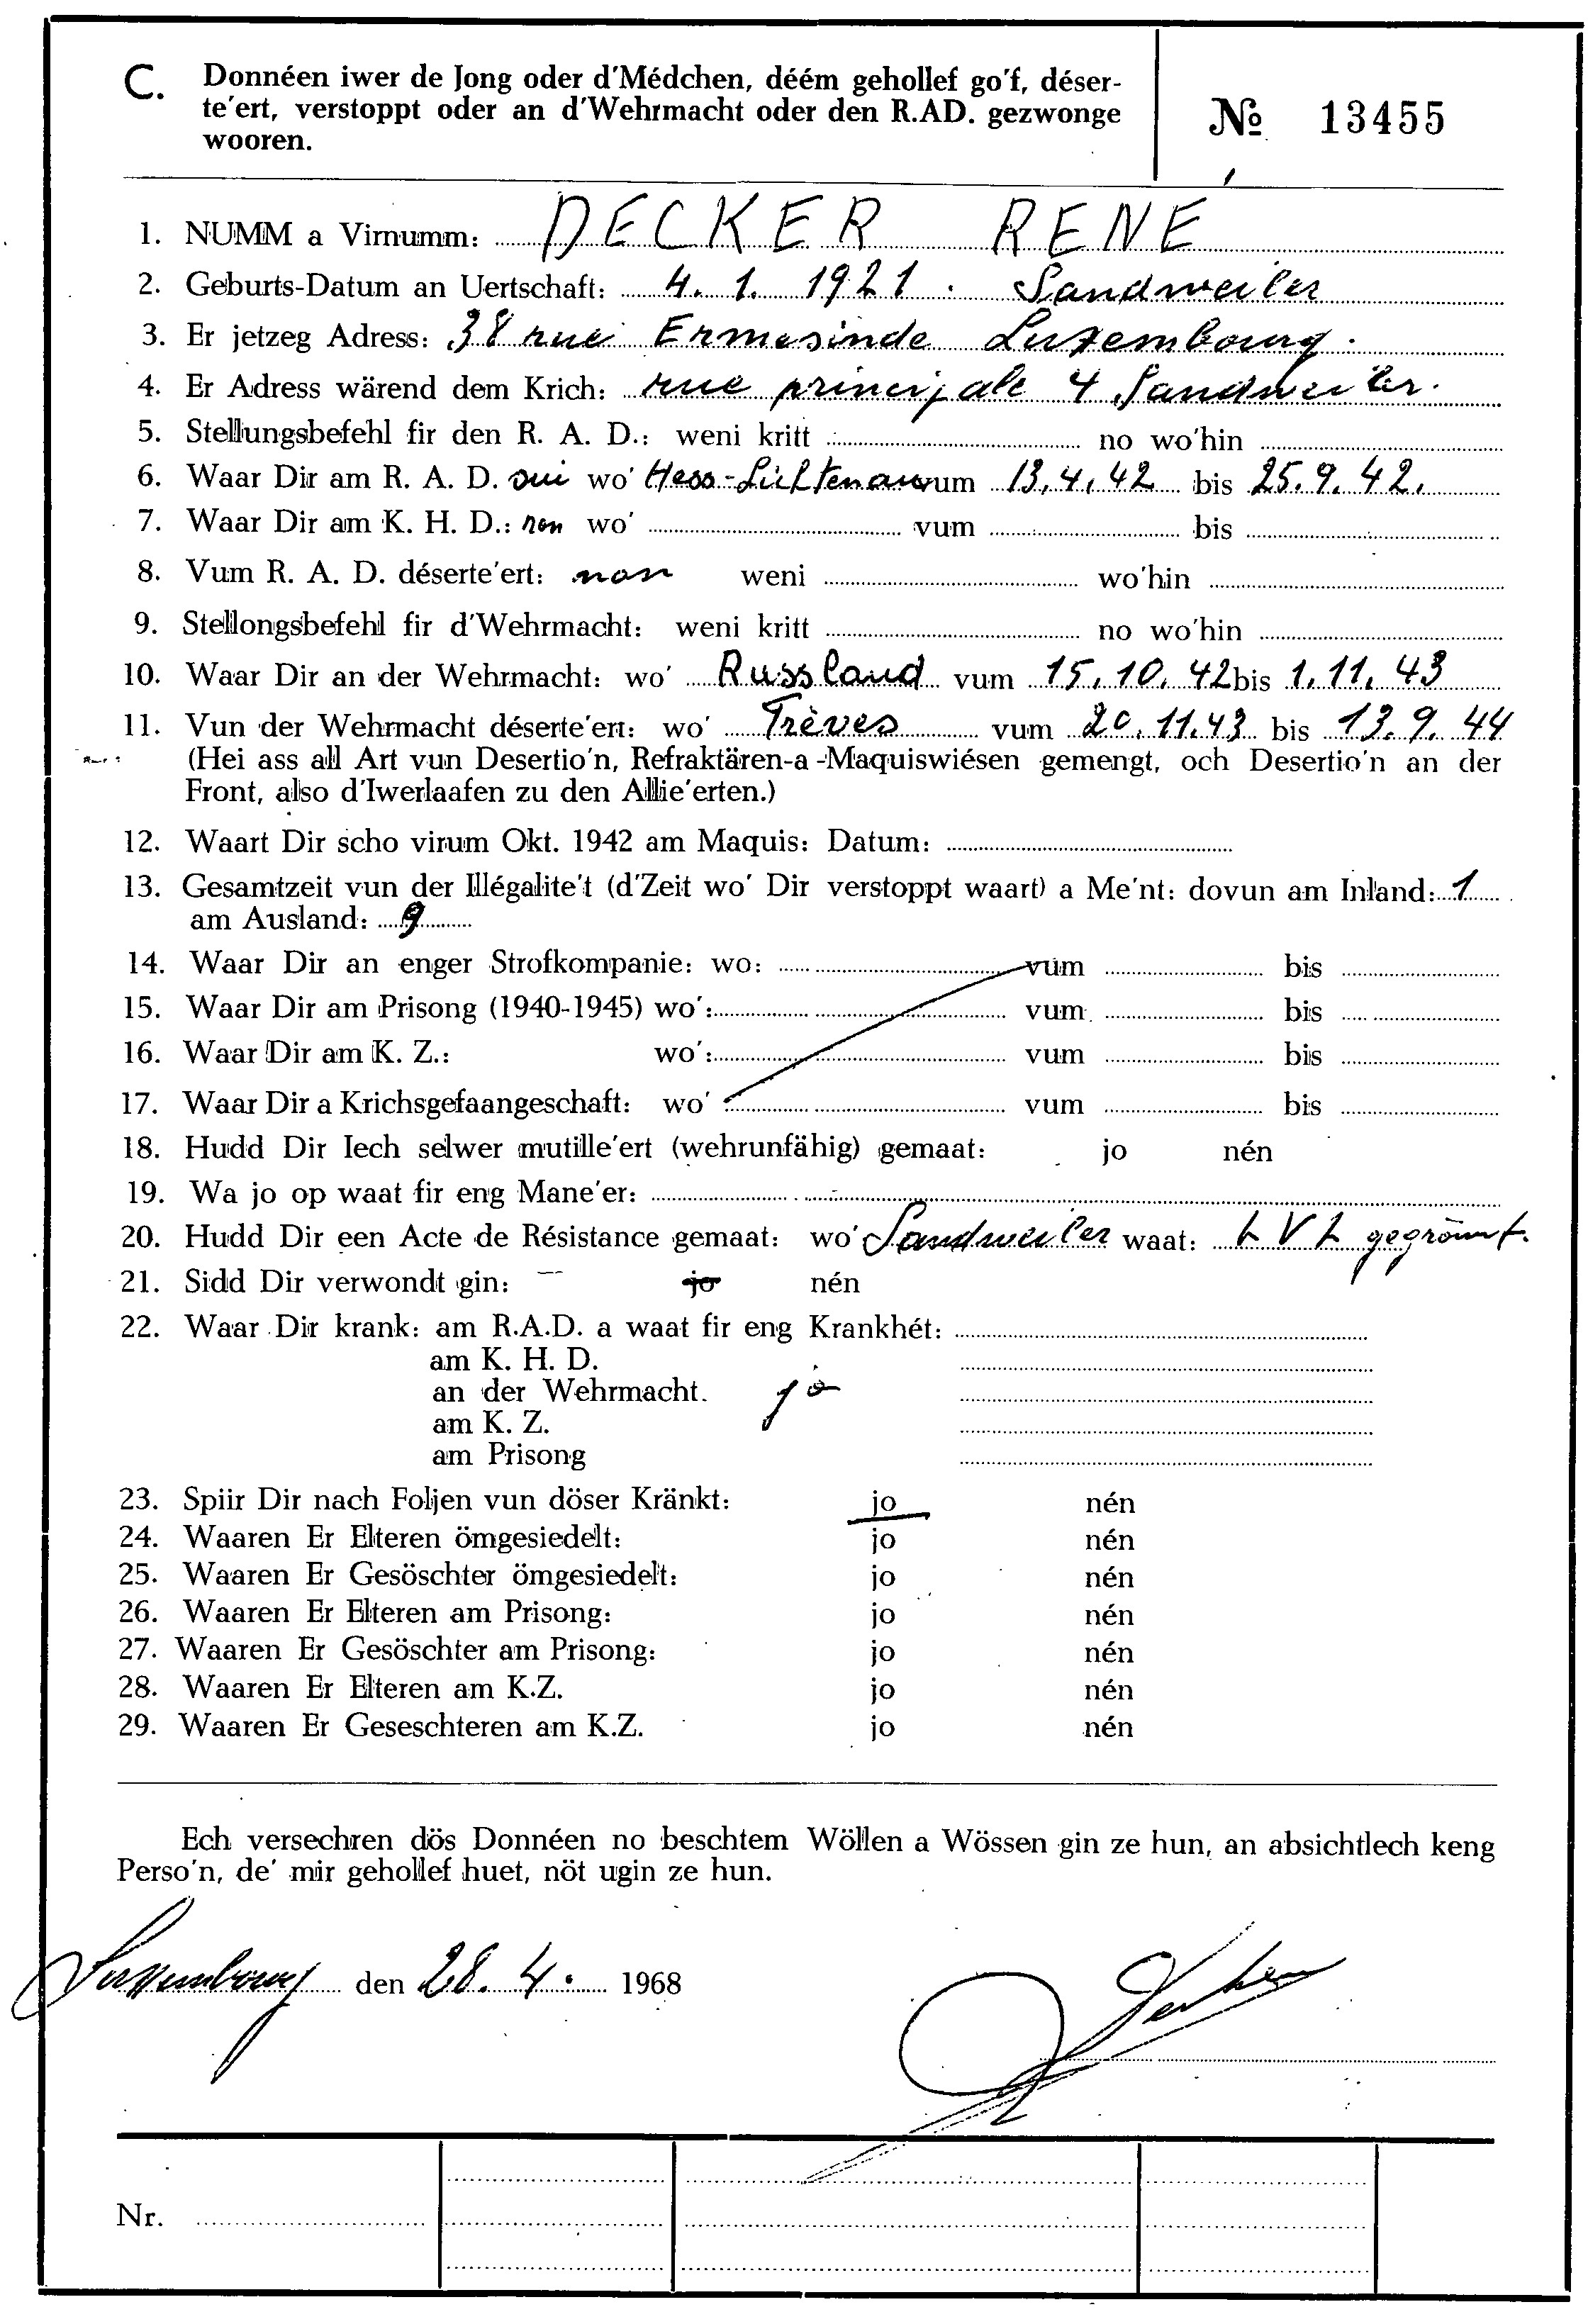 C. Donnéen iwer de Jong oder d'Médchen, déém gehollef go'f, déser-
te'ert, verstoppt oder an d'Wehrmacht oder den R.AD. gezwonge
wooren.
№ 13455
1. NUMM a Virnumm: DECKER RENÉ
2. Geburts-Datum an Uertschaft: 4. 1. 1921. Sandweiler
3. Er jetzeg Adress: 38 rue Ermesinde Luxembourg.
4. Er Adress wärend dem Krich: rue principale 4 Sandweiler.
5. Stellungsbefehl fir den R. A. D.: weni kritt no wo'hin
6. Waar Dir am R. A. D. oui wo' Hess-Lichtenau vum 13.4.42 bis 25.9.42.
7. Waar Dir am K. H. D.: non wo' vum bis
8. Vum R. A. D. déserte'ert: non weni wo'hin
9. Stellongsbefehl fir d'Wehrmacht: weni kritt no wo'hin
10. Waar Dir an der Wehrmacht: wo' Russland vum 15.10.42 bis 1.11.43
11. Vun der Wehrmacht déserte'ert: wo' Trèves vum 20.11.43 bis 13.9.44
(Hei ass all Art vun Desertio'n, Refraktären-a-Maquiswiésen gemengt, och Desertio'n an der
Front, also d'Iwerlaafen zu den Allie'erten.)
12. Waart Dir scho virum Okt. 1942 am Maquis: Datum:
13. Gesamtzeit vun der Illégalite't (d'Zeit wo' Dir verstoppt waart) a Me'nt: dovun am Inland: 1
am Ausland: 9
14. Waar Dir an enger Strofkompanie: wo: vum bis
15. Waar Dir am Prisong (1940-1945) wo': vum bis
16. Waar Dir am K. Z.: wo': vum bis
17. Waar Dir a Krichsgefaangeschaft: wo' vum bis
18. Hudd Dir Iech selwer mutille'ert (wehrunfähig) gemaat: jo nén
19. Wa jo op waat fir eng Mane'er:
20. Hudd Dir een Acte de Résistance gemaat: wo' Sandweiler waat: LVL gegrönnt.
21. Sidd Dir verwondt gin: jo nén
22. Waar Dir krank: am R.A.D. a waat fir eng Krankhét:
am K. H. D.
an der Wehrmacht. jo
am K. Z.
am Prisong
23. Spiir Dir nach Foljen vun döser Kränkt: jo nén
24. Waaren Er Elteren ömgesiedelt: jo nén
25. Waaren Er Gesöschter ömgesiedelt: jo nén
26. Waaren Er Elteren am Prisong: jo nén
27. Waaren Er Gesöschter am Prisong: jo nén
28. Waaren Er Elteren am K.Z. jo nén
29. Waaren Er Geseschteren am K.Z. jo nén
Ech versechren dös Donnéen no beschtem Wöllen a Wössen gin ze hun, an absichtlech keng
Perso'n, de' mir gehollef huet, nöt ugin ze hun.
Luxembourg den 28. 4. 1968
Decker
Nr.